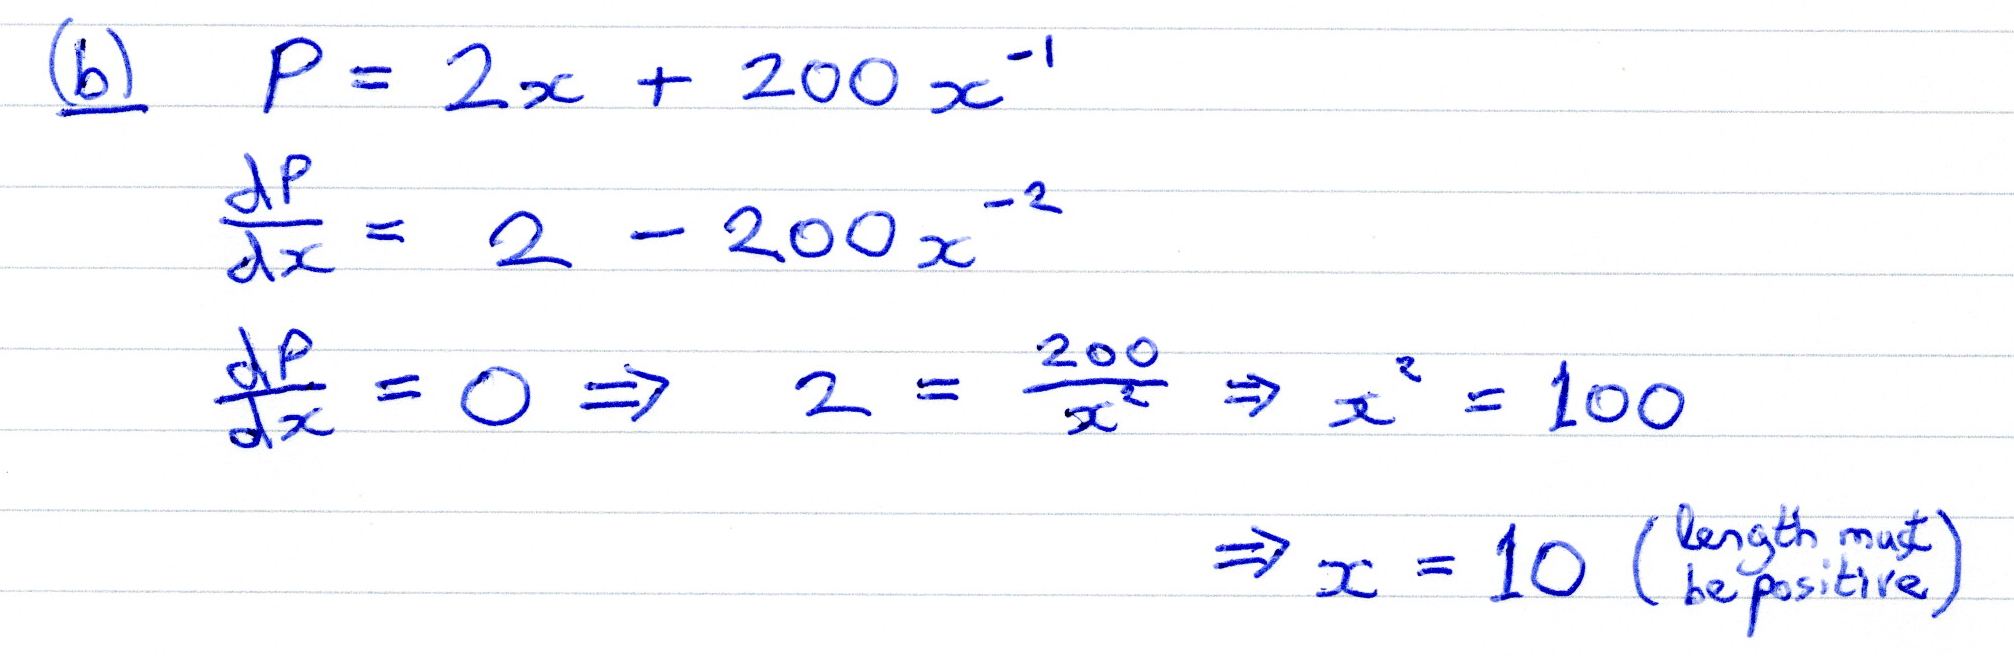 (b) P = 2x + 200x⁻¹
dP/dx = 2 - 200x⁻²
dP/dx = 0 ⇒ 2 = 200/x² ⇒ x² = 100
⇒ x = 10 (length must be positive)